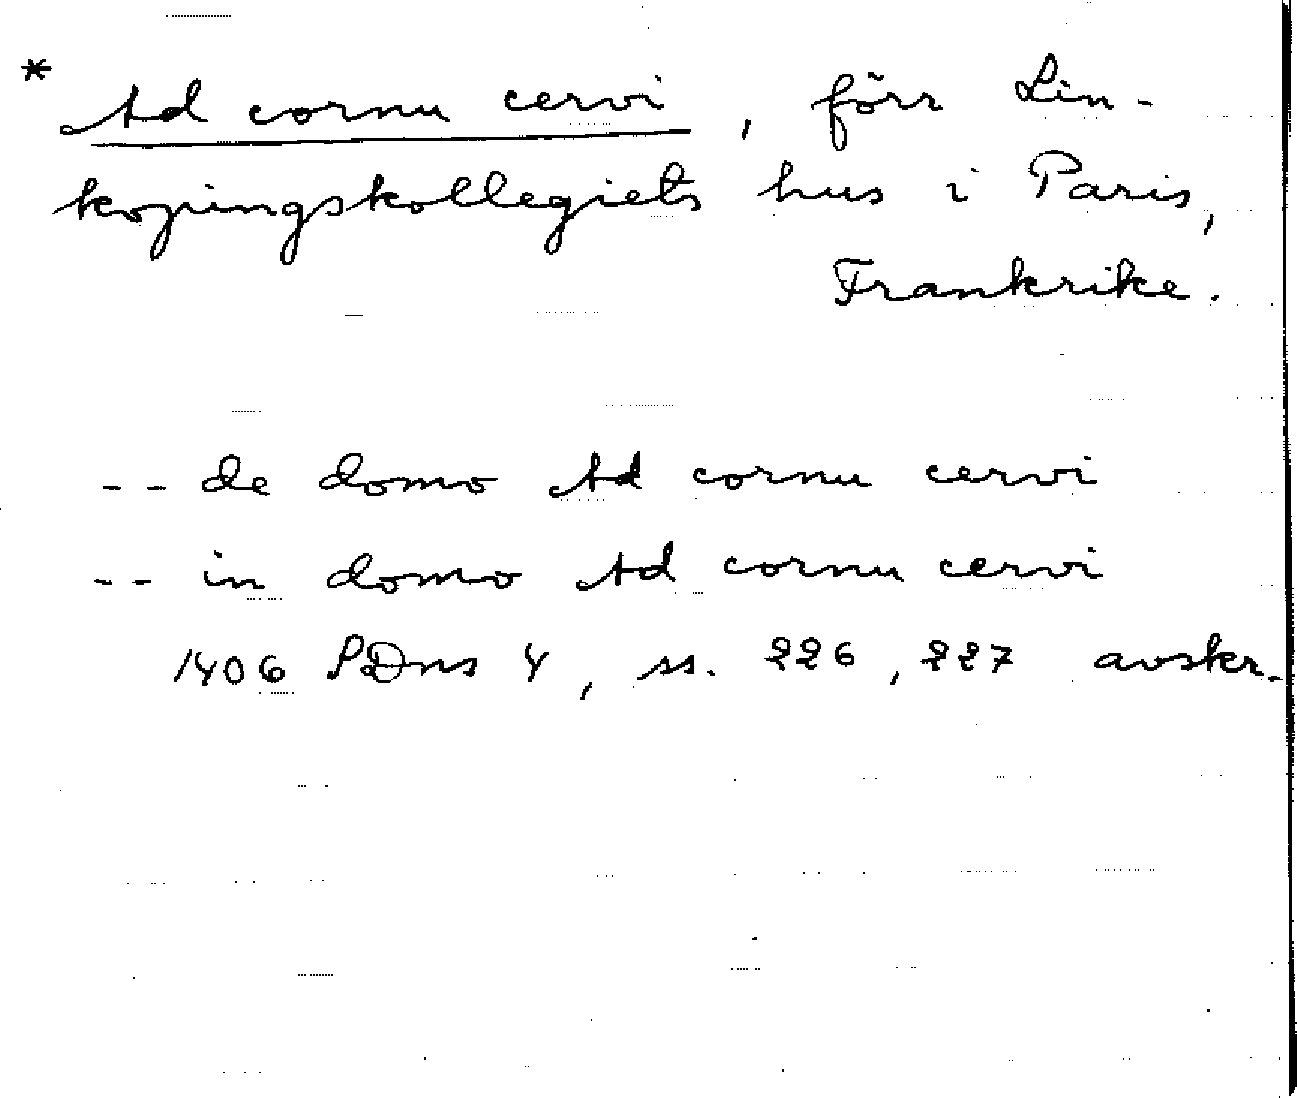 * Ad cornu cervi, förr Lin-
kopingskollegiets hus i Paris,
Frankrike.
-- de domo Ad cornu cervi
-- in domo Ad cornu cervi
1406 SDns 4, ss. 226, 227 avskr.